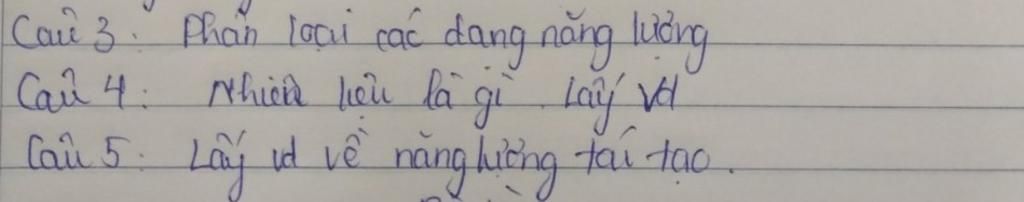 Câu 3: Phân loại các dạng năng lượng
Câu 4: Nhiên liệu là gì. Lấy vd
Câu 5: Lấy vd về năng lượng tái tạo.